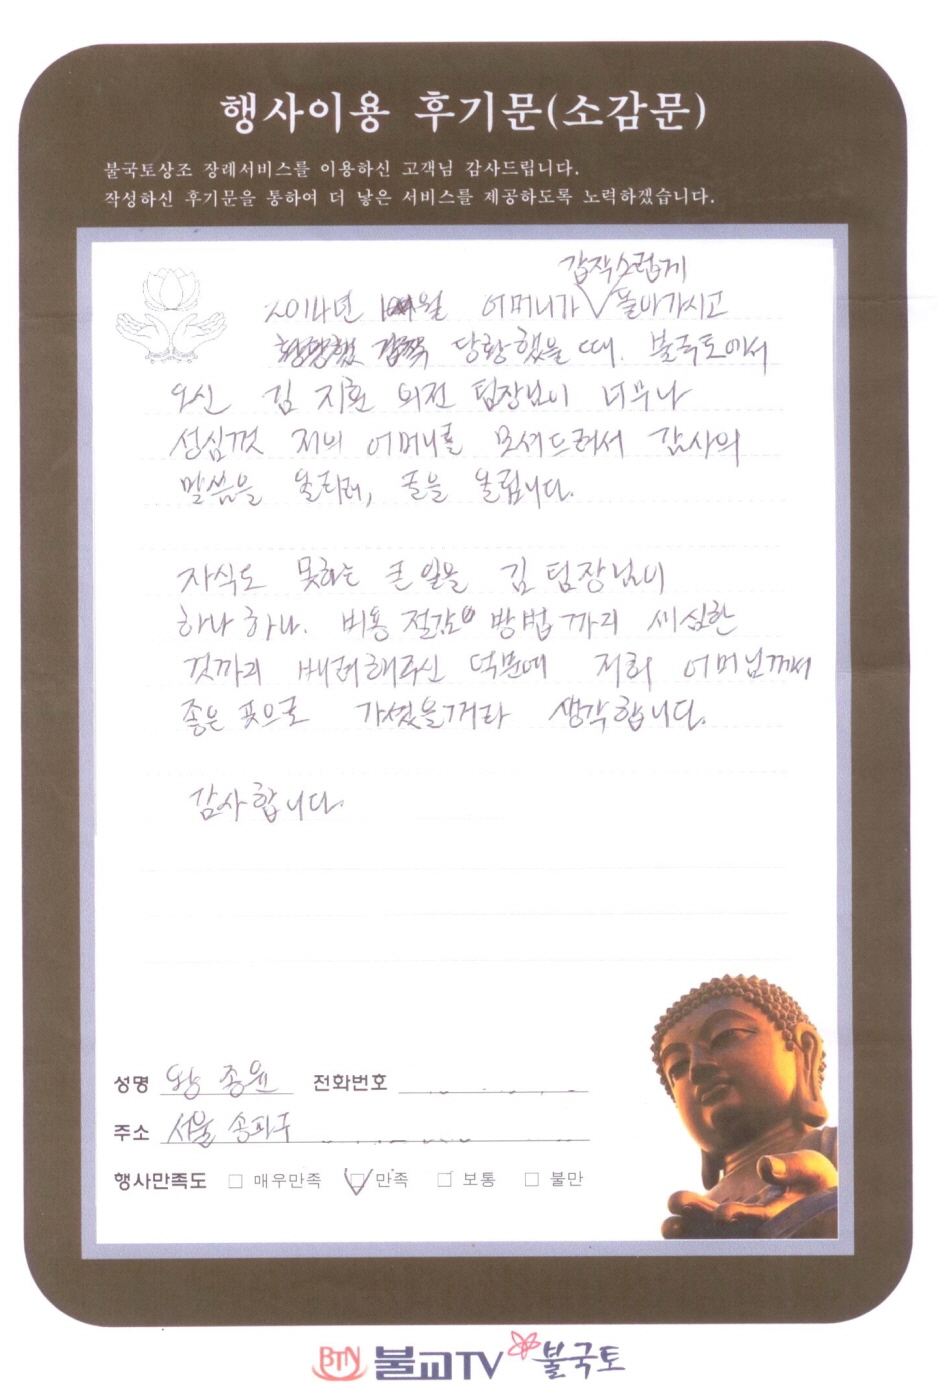 행사이용 후기문(소감문)
불국토상조 장례서비스를 이용하신 고객님 감사드립니다.
작성하신 후기문을 통하여 더 낳은 서비스를 제공하도록 노력하겠습니다.
갑작스럽게
2014년 월 어머니가 ∨ 돌아가시고
당황했을 때. 불국토에서
오신 김 지환 의전 팀장님이 너무나
성심껏 저의 어머니를 모셔드려서 감사의
말씀을 올리려, 글을 올립니다.
자식도 못하는 큰 일을 김 팀장님이
하나 하나. 비용 절감 방법까지 세심한
것까지 배려해주신 덕분에 저희 어머님께서
좋은 곳으로 가셨을꺼라 생각합니다.
감사합니다.
성명 왕 종윤 전화번호
주소 서울 송파구
행사만족도 □ 매우만족 ☑ 만족 □ 보통 □ 불만
BTN 불교TV 불국토